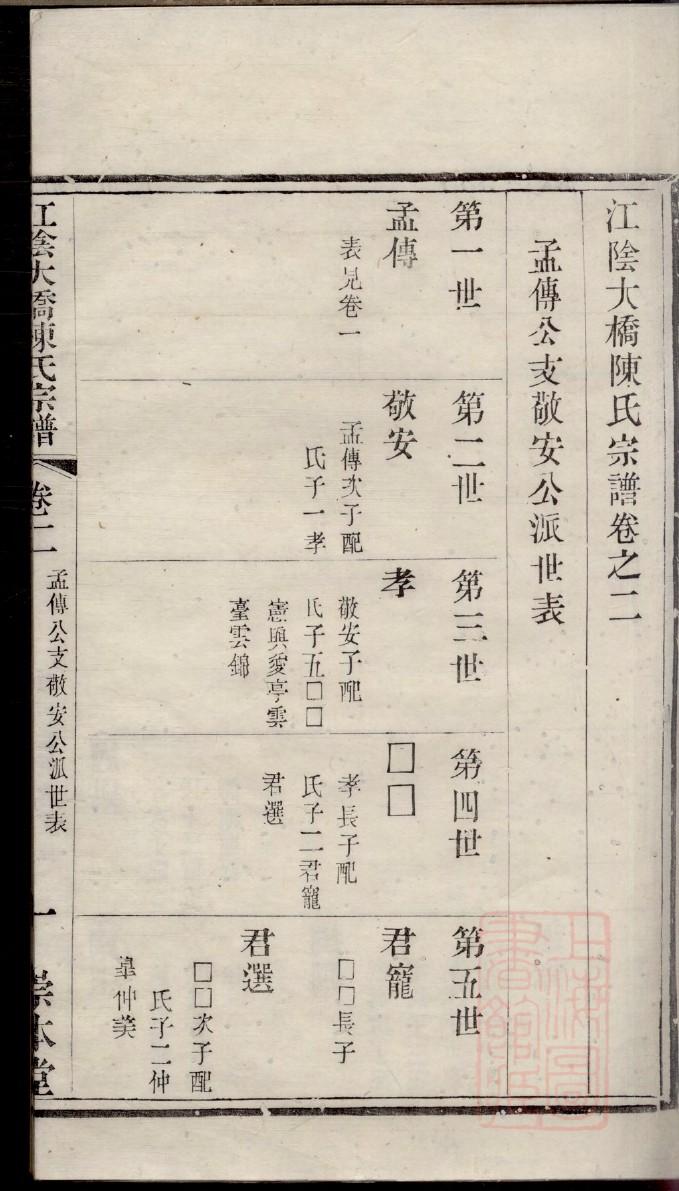 江陰大橋陳氏宗譜卷之二
孟傳公支敬安公派世表
第一世
孟傳
表見卷一
第二世
敬安
孟傳次子配
氏子一孝
第三世
孝
敬安子配
氏子五□□
憲興愛亭雲
臺雲錦
第四世
□□
孝長子配
氏子二君寵
君選
第五世
君寵
□□長子
君選
□□次子配
氏子二仲
皐仲美
江陰大橋陳氏宗譜
卷二
孟傳公支敬安公派世表
一
崇本堂
上海圖書館藏